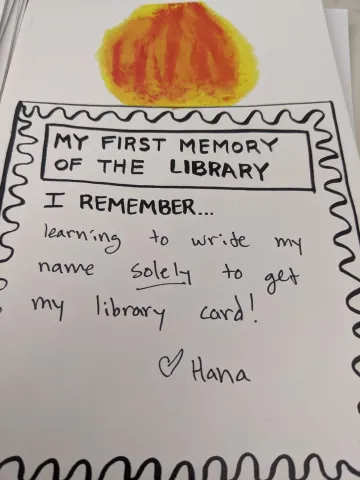 MY FIRST MEMORY
OF THE LIBRARY
I REMEMBER...
learning to write my
name solely to get
my library card!
♡ Hana